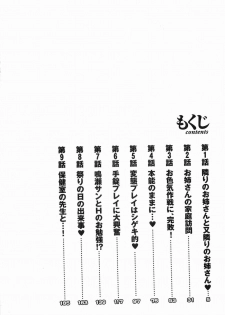 もくじ
contents
第1話 隣りのお姉さんと又隣りのお姉さん♥ 5
第2話 お姉さんの家庭訪問 31
第3話 お色気作戦に、完敗! 53
第4話 本能のままに♥ 75
第5話 変態プレイはシゲキ的♥ 97
第6話 手錠プレイに大興奮 117
第7話 鳴瀬サンとHのお勉強!?
第8話 祭りの日の出来事♥ 163
第9話 保健室の先生と…! 185